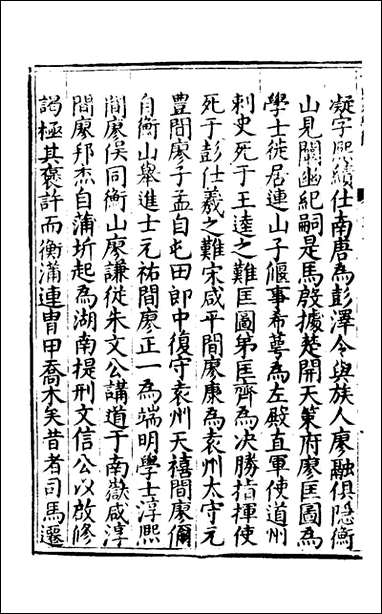 凝字熙績仕南唐為彭澤令與族人廖融俱隱衡
山見闡幽紀嗣是馬殷據楚開天策府廖匡圖為
學士徙居連山子偃事希萼為左殿直軍使道州
刺史死于王逵之難匡圖弟匡齊為决勝指揮使
死于彭仕羲之難宋咸平間廖康為袁州太守元
豐間廖子孟自屯田郎中復守袁州天禧間廖儞
自衡山舉進士元祐間廖正一為端明學士淳熙
間廖俣同衡山廖謙從朱文公講道于南嶽咸淳
間廖邦杰自蒲圻起為湖南提刑文信公以啟修
謁極其褒許而衡蒲連胄甲喬木矣昔者司馬遷